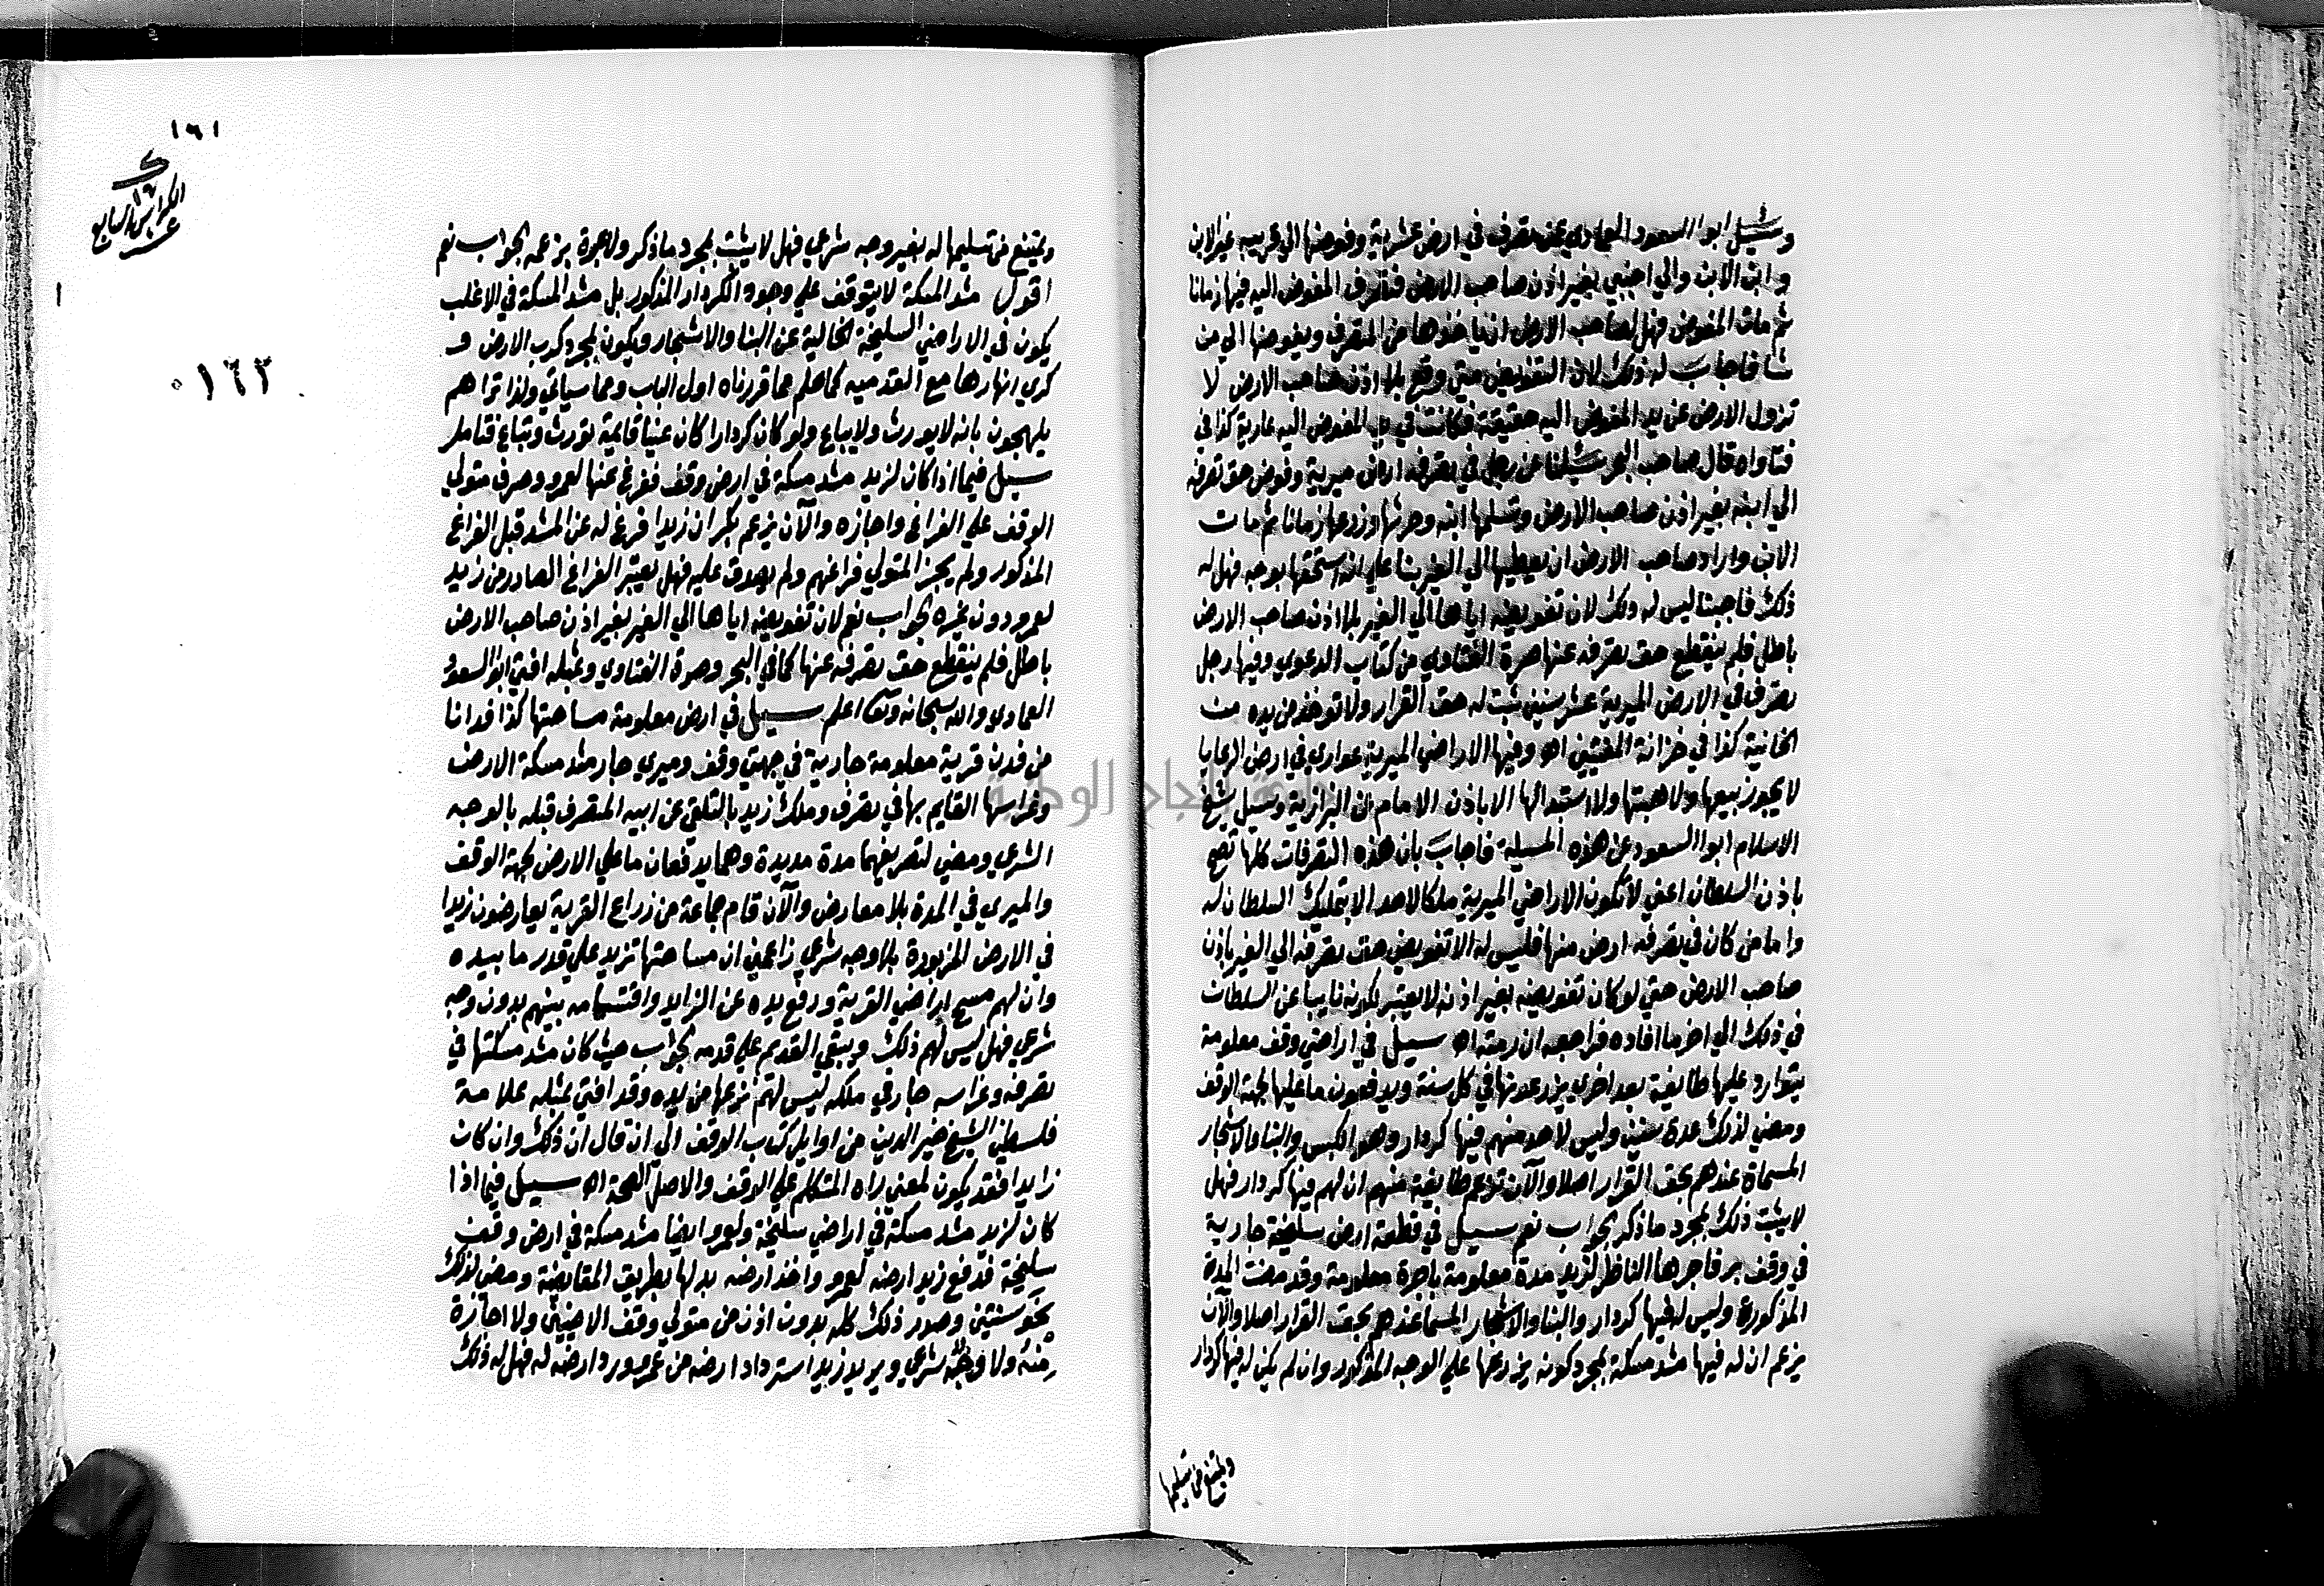 وسئل ابو السعود العمادي عمن تصرف في ارض عشرية وفوضها الى قريبه غير الابن
وابن الابن والي اجنبي بغير اذن صاحب الارض فتصرف المفوض اليه فيها زمانا
ثم مات المفوض فهل لصاحب الارض ان ياخذها من المتصرف ويفوضها الي من
شا فاجاب له ذلك لان التفويض متي وقع بلا اذن صاحب الارض لا
تزول الارض عن يد المفوض اليه حقيقة فكانت في يد المفوض اليه عارية كذا في
فتاواه قال صاحب البحر سئلنا عن رجل في تصرفه اراض ميرية وفوض حق تصرفه
الي ابنه بغير اذن صاحب الارض وتسلمها ابنه وحرثها وزرعها زمانا ثم مات
الاب واراد صاحب الارض ان يعطيها الي الغير بنا علي انه استحقها بوجه فهل له
ذلك فاجبنا ليس له ذلك لان تفويضه اياها الي الغير بلا اذن صاحب الارض
باطل فلم ينقطع حق تصرفه عنها صرة الفتاوي من كتاب الدعوي وفيها رجل
تصرف في الارض الميرية عشر سنين ثبت له حق القرار ولا توخذ من يده من
الخانية كذا في خزانة المفتيين اه وفيها الاراضي الميرية عواري في ارض الرعايا
لا يجوز بيعها ولا هبتها ولا استبدالها الا باذن الامام من البزازية وسئل شيخ
الاسلام ابو السعود عن هذه المسيلة فاجاب بان هذه التصرفات كلها تصح
باذن السلطان اعني لا تكون الاراضي الميرية ملكا لاحد الا بتمليك السلطان له
واما من كان في تصرفه ارض منها فليس له الا تفويض حق تصرفه الي الغير باذن
صاحب الارض حتي لو كان تفويضه بغير اذنه لا يعتبر لكونه نايبا عن السلطان
في ذلك الي اخر ما افاده فراجعه ان رمته اه سيل في اراضي وقف معلومة
يتوارد عليها طايفة بعد اخري يزرعونها في كل سنة ويدفعون ما عليها لجهة الوقف
ومضي لذلك عدة سنين وليس لاحد منهم فيها كردار وهو الكبس والبنا والاشجار
المسماة عندهم بحق القرار اصلا والآن تزعم طايفة منهم ان لهم فيها كردار فهل
لا يثبت ذلك بمجرد ما ذكر الجواب نعم سيل في قطعة ارض سليخة جارية
في وقف بر فاجرها الناظر لزيد مدة معلومة باجرة معلومة وقد مضت المدة
المذكورة وليس له فيها كردار والبنا والاشجار المسما عندهم بحق القرار اصلا والآن
يزعم ان له فيها مشد مسكة بمجرد كونه يزرعها علي الوجه المذكور وان لم يكن له فيها كردار
ويمتنع من تسليمها
١٦١
ك
١٦
الكراس السابع
عشر
١٦٢
ويمتنع من تسليمها له بغير وجه شرعي فهل لا يثبت بمجرد ما ذكر ولا عبرة بزعمه الجواب نعم
اقول مشد المسكة لا يتوقف علي وجود الكردار المذكور بل مشد المسكة في الاغلب
يكون في الاراضي السليخة الخالية عن البنا والاشجار ويكون بمجرد كرب الارض و
كري انهارها مع القدمية كما علم مما قررناه اول الباب ومما سياتي ولذا تراهم
يلهجون بانه لا يورث ولا يباع ولو كان كردارا كان عينا قايمة تورث وتباع فتامل
سيل فيما اذا كان لزيد مشد مسكة في ارض وقف ففرغ عنها لعمرو وصدق متولي
الوقف علي الفراغ واجازه والآن يزعم بكر ان زيدا فرغ له عن المشد قبل الفراغ
المذكور ولم يجز المتولي فراغهم ولم يصدق عليه فهل يعتبر الفراغ الصادر من زيد
لعمرو دون غيره الجواب نعم لان تفويضه اياها الي الغير بغير اذن صاحب الارض
باطل فلم ينقطع حق تصرفه عنها كما في البحر وصرة الفتاوي وبمثله افتي ابو السعود
العمادي والله سبحانه وتعالى اعلم سيل في ارض معلومة مساحتها كذا فدانا
من فدن قرية معلومة جارية في جهتي وقف وميري جار مشد مسكة الارض
وغراسها القايم بها في تصرف وملك زيد بالتلقي عن ابيه المتصرف قبله بالوجه
الشرعي ومضي لتصرفهما مدة مديدة وهما يدفعان ما علي الارض لجهة الوقف
والميري في المدة بلا معارض والآن قام جماعة من زراع القرية يعارضون زيدا
في الارض المزبورة بلا وجه شرعي زاعمين ان مساحتها تزيد علي قدر ما بيده
وان لهم مسح اراضي القرية ورفع يده عن الزايد واقتسامه بينهم بدون وجه
شرعي فهل ليس لهم ذلك ويبقي القديم علي قدمه الجواب حيث كان مشد مسكتها في
تصرفه وغراسه جار في ملكه ليس لهم نزعها من يده وقد افتي بمثله علامة
فلسطين الشيخ خير الدين من اوايل كتاب الوقف الي ان قال ان ذلك وان كان
زايدا فقد يكون لمعني راه المتكلم علي الوقف والاصل الصحة اه سيل فيما اذا
كان لزيد مشد مسكة في اراضي سليخة ولعمرو ايضا مشد مسكة في ارض وقف
سليخة فدفع زيد ارضه لعمرو واخذ ارضه بدلها بطريق المقايضة ومضي لذلك
نحو سنتين وصدر ذلك كله بدون اذن من متولي وقف الارضين ولا اجازة
منه ولا وجه شرعي ويريد زيد استرداد ارضه من عمرو ورد ارضه له فهل له ذلك